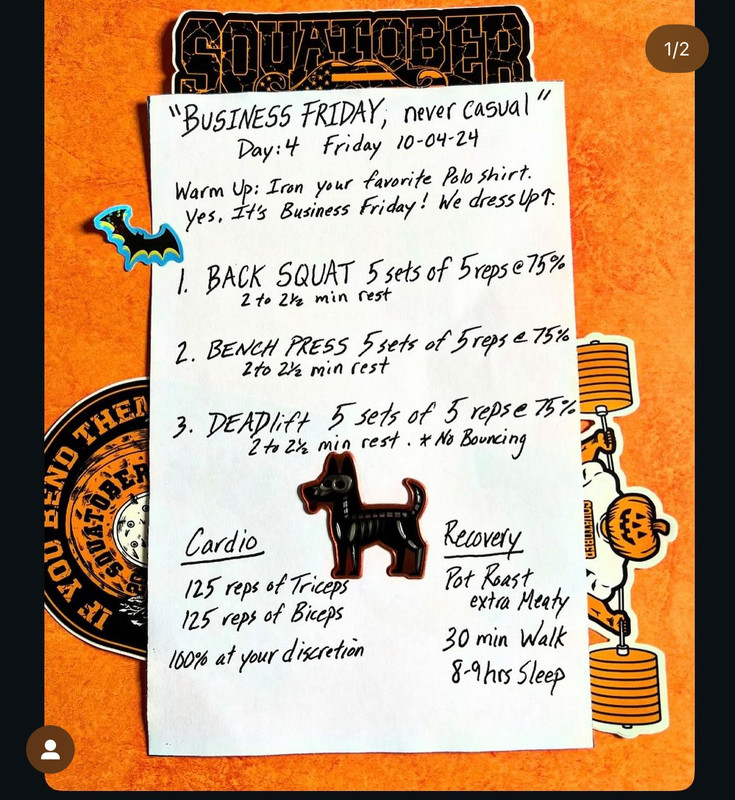 1/2
SQUATOBER
"BUSINESS FRIDAY, never casual"
Day:4 Friday 10-04-24
Warm Up: Iron your favorite Polo shirt.
Yes, It's Business Friday! We dress Up↑.
1. BACK SQUAT 5 sets of 5 reps @ 75%
2 to 2½ min rest
2. BENCH PRESS 5 sets of 5 reps @ 75%
2 to 2½ min rest
3. DEADlift 5 sets of 5 reps @ 75%
2 to 2½ min rest. * No Bouncing
Cardio
125 reps of Triceps
125 reps of Biceps
100% at your discretion
Recovery
Pot Roast
extra Meaty
30 min Walk
8-9 hrs Sleep
IF YOU BEND THEM
SQUATOBER
SQUATOBER